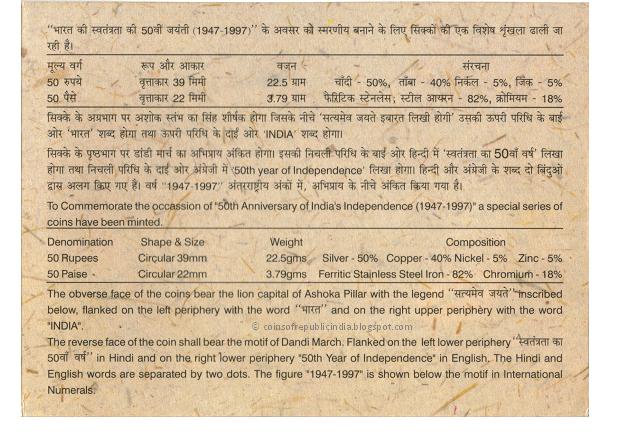 "भारत की स्वतंत्रता की 50वीं जयंती (1947-1997)" के अवसर को स्मरणीय बनाने के लिए सिक्कों की एक विशेष श्रृंखला ढाली जा
रही है।
मूल्य वर्ग रूप और आकार वजन संरचना
50 रुपये वृत्ताकार 39 मिमी 22.5 ग्राम चाँदी - 50%, ताँबा - 40% निकल - 5%, जिंक - 5%
50 पैसे वृत्ताकार 22 मिमी 3.79 ग्राम फेरिटिक स्टेनलेस; स्टील आयरन - 82%, क्रोमियम - 18%
सिक्के के अग्रभाग पर अशोक स्तंभ का सिंह शीर्षक होगा जिसके नीचे 'सत्यमेव जयते इबारत लिखी होगी' उसकी ऊपरी परिधि के बाईं
ओर 'भारत' शब्द होगा तथा ऊपरी परिधि के दाईं ओर 'INDIA' शब्द होगा।
सिक्के के पृष्ठभाग पर डांडी मार्च का अभिप्राय अंकित होगा। इसकी निचली परिधि के बाईं ओर हिन्दी में 'स्वतंत्रता का 50वाँ वर्ष' लिखा
होगा तथा निचली परिधि के दाईं ओर अंग्रेजी में '50th year of Independence' लिखा होगा। हिन्दी और अंग्रेजी के शब्द दो बिंदुओं
द्वारा अलग किए गए हैं। वर्ष "1947-1997" अंतरराष्ट्रीय अंकों में, अभिप्राय के नीचे अंकित किया गया है।
To Commemorate the occassion of "50th Anniversary of India's Independence (1947-1997)" a special series of
coins have been minted.
Denomination Shape & Size Weight Composition
50 Rupees Circular 39mm 22.5gms Silver - 50% Copper - 40% Nickel - 5% Zinc - 5%
50 Paise Circular 22mm 3.79gms Ferritic Stainless Steel Iron - 82% Chromium - 18%
The obverse face of the coins bear the lion capital of Ashoka Pillar with the legend "सत्यमेव जयते" inscribed
below, flanked on the left periphery with the word "भारत" and on the right upper periphery with the word
"INDIA".
© coinsofrepublicindia.blogspot.com
The reverse face of the coin shall bear the motif of Dandi March. Flanked on the left lower periphery "स्वतंत्रता का
50वाँ वर्ष" in Hindi and on the right lower periphery "50th Year of Independence" in English. The Hindi and
English words are separated by two dots. The figure "1947-1997" is shown below the motif in International
Numerals.